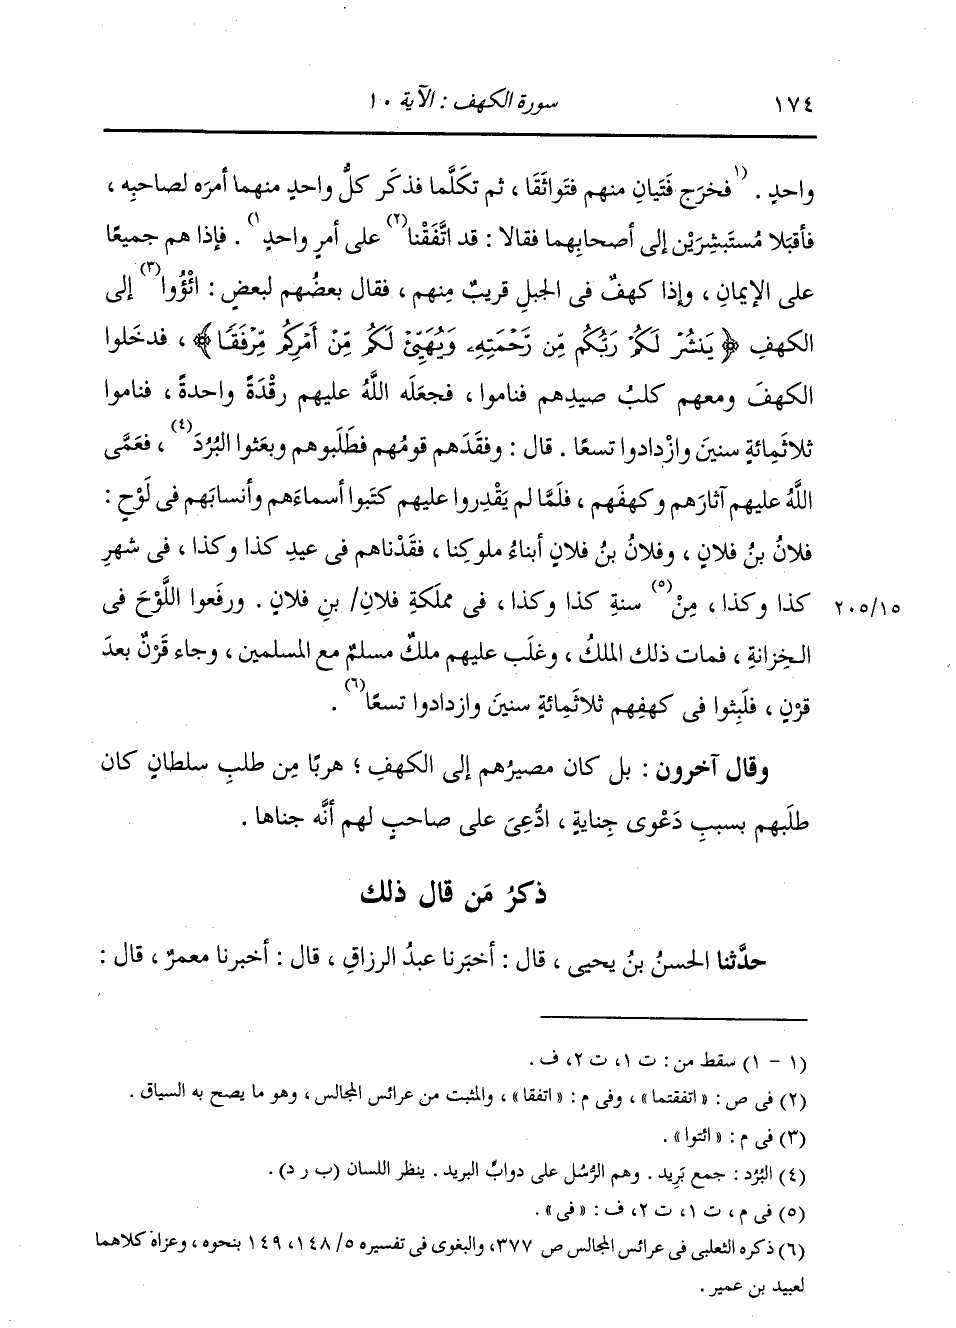 ١٧٤ سورة الكهف : الآية ١٠
واحدٍ . ⁽¹فخرَج فَتَيان منهم فتَواثَقَا ، ثم تكَلَّما فذكَر كلُّ واحدٍ منهما أمرَه لصاحبِه ،
فأقبَلا مُستَبشِرَيْن إلى أصحابِهما فقالا : قد اتَّفَقْنا⁽٢⁾ على أمرٍ واحدٍ¹⁾ . فإذا هم جميعًا
على الإيمانِ ، وإذا كهفٌ فى الجبلِ قريبٌ مِنهم ، فقال بعضُهم لبعضٍ : ائْؤُوا⁽٣⁾ إلى
الكهفِ ﴿ يَنشُرْ لَكُمْ رَبُّكُم مِّن رَّحْمَتِهِۦ وَيُهَيِّئْ لَكُم مِّنْ أَمْرِكُم مِّرْفَقًا ﴾ ، فدخَلوا
الكهفَ ومعهم كلبُ صيدِهم فناموا ، فجعَله اللَّهُ عليهم رقْدَةً واحدةً ، فناموا
ثلاثَمِائةٍ سنينَ وازْدادوا تسعًا . قال : وفقَدَهم قومُهم فطَلَبوهم وبعَثوا البُرُدَ⁽٤⁾ ، فعَمَّى
اللَّهُ عليهم آثارَهم وكهفَهم ، فلَمَّا لم يَقْدِروا عليهم كتَبوا أسماءَهم وأنسابَهم فى لَوْحٍ :
فلانُ بنُ فلانٍ ، وفلانُ بنُ فلانٍ أبناءُ ملوكِنا ، فقَدْناهم فى عيدِ كذا وكذا ، فى شهرِ
كذا وكذا ، مِنْ⁽٥⁾ سنةِ كذا وكذا ، فى مملَكةِ فلانِ/ بنِ فلانٍ . ورفَعوا اللَّوْحَ فى ٢٠٥/١٥
الخِزانةِ ، فمات ذلك الملكُ ، وغلَب عليهم ملكٌ مسلمٌ مع المسلمين ، وجاء قَرْنٌ بعدَ
قرْنٍ ، فلَبِثوا فى كهفِهم ثلاثَمِائةٍ سنينَ وازدادوا تسعًا⁽٦⁾ .
وقال آخرون : بل كان مصيرُهم إلى الكهفِ ؛ هربًا مِن طلبِ سلطانٍ كان
طلَبهم بسببِ دَعْوى جِنايةٍ ، ادُّعِىَ على صاحبٍ لهم أنَّه جناها .
ذكرُ مَن قال ذلك
حدَّثنا الحسنُ بنُ يحيى ، قال : أخبَرنا عبدُ الرزاقِ ، قال : أخبرنا معمرٌ ، قال :
(١ - ١) سقط من : ت ١، ت ٢، ف .
(٢) فى ص : « اتفقتما » ، وفى م : « اتفقا » ، والمثبت من عرائس المجالس ، وهو ما يصح به السياق .
(٣) فى م : « ائتوا » .
(٤) البُرُد : جمع بَرِيد . وهم الرُّسُل على دوابِّ البريد . ينظر اللسان (ب ر د) .
(٥) فى م، ت ١، ت ٢، ف : « فى » .
(٦) ذكره الثعلبى فى عرائس المجالس ص ٣٧٧، والبغوى فى تفسيره ٥/ ١٤٨، ١٤٩ بنحوه ، وعزاه كلاهما
لعبيد بن عمير .